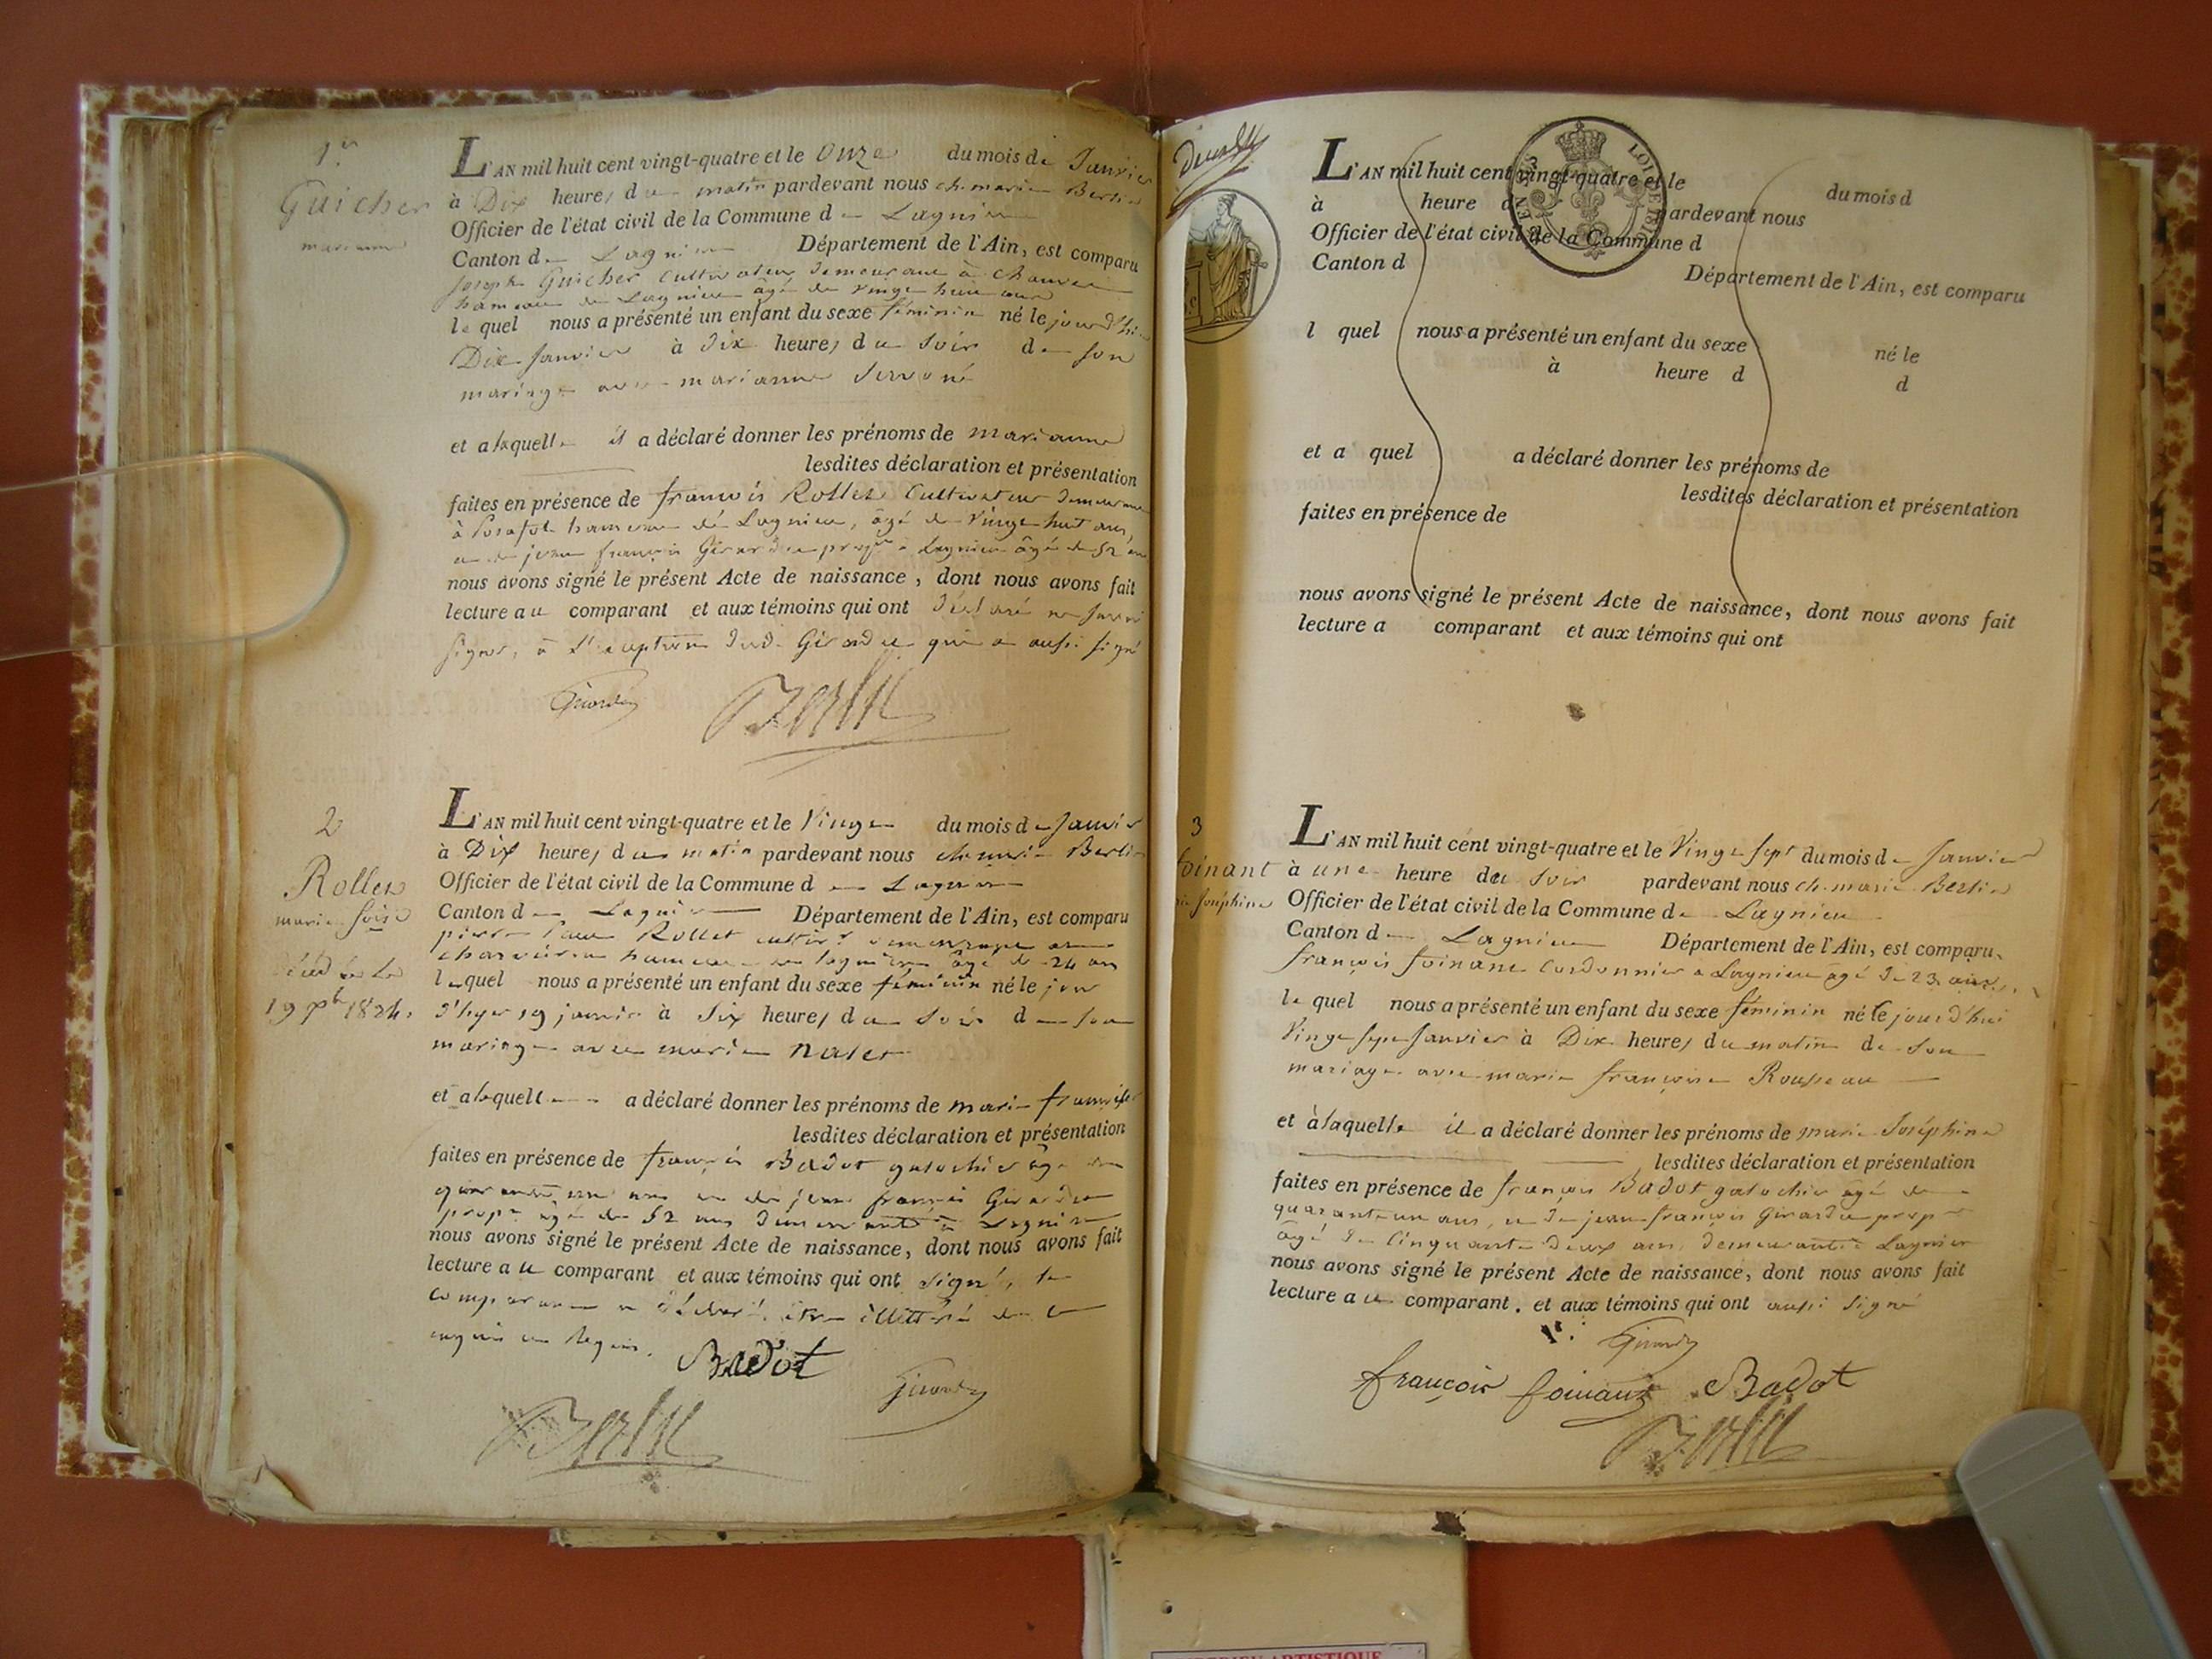 1er
Guicher
marianne
L'AN mil huit cent vingt-quatre et le Onze du mois de Janvier
à Dix heures du matin pardevant nous ch. marie Berlie
Officier de l'état civil de la Commune de Lagnieu
Canton de Lagnieu Département de l'Ain, est comparu
Joseph Guicher Cultivateur demeurant à
hameau de Lagnieu âgé de vingt huit ans
lequel nous a présenté un enfant du sexe féminin né le jour d'hier
Dix Janvier à Dix heures du Soir de son
mariage avec marianne
et a laquelle il a déclaré donner les prénoms de marianne
lesdites déclaration et présentation
faites en présence de françois Rollet Cultivateur demeurant
à Posafol hameau de Lagnieu, âgé de Vingt huit ans,
et de jean françois Girardu propre a Lagnieu âgé de 52 ans
nous avons signé le présent Acte de naissance, dont nous avons fait
lecture au comparant et aux témoins qui ont déclaré ne savoir
signer, à l'exception dud. Girardu qui a aussi signé
2
Rollet
marie foise
décédée le
19 1824.
L'AN mil huit cent vingt-quatre et le Vingt du mois de Janvier
à Dix heures du matin pardevant nous ch. marie Berlie
Officier de l'état civil de la Commune de Lagnieu
Canton de Lagnieu Département de l'Ain, est comparu
pierre Rollet demeurant
hameau de lagnieu âgé de 24 ans
lequel nous a présenté un enfant du sexe féminin né le jour
d'hyer 19 janvier à Six heures du Soir de son
mariage avec marie
et a laquelle a déclaré donner les prénoms de marie françoise
lesdites déclaration et présentation
faites en présence de françois Badot galochier âgé de
quarante un ans et de jean françois Girardu
propre âgé de 52 ans demeurants à Lagnieu
nous avons signé le présent Acte de naissance, dont nous avons fait
lecture au comparant et aux témoins qui ont signé, le
comparant a déclaré être illittéré de ce
enquis et requis.
Badot
L'AN mil huit cent vingt-quatre et le du mois d
à heure d pardevant nous
Officier de l'état civil de la Commune d
Canton d Département de l'Ain, est comparu
l quel nous a présenté un enfant du sexe né le
à heure d d
et a quel a déclaré donner les prénoms de
lesdites déclaration et présentation
faites en présence de
nous avons signé le présent Acte de naissance, dont nous avons fait
lecture a comparant et aux témoins qui ont
3
foinant
Joséphine
L'AN mil huit cent vingt-quatre et le Vingt sept du mois de Janvier
à une heure du Soir pardevant nous ch. marie Berlie
Officier de l'état civil de la Commune de Lagnieu
Canton de Lagnieu Département de l'Ain, est comparu
françois foinant Cordonnier a Lagnieu âgé de 23 ans
lequel nous a présenté un enfant du sexe féminin né le jourd'hui
Vingt sept Janvier à Dix heures du matin de Son
mariage avec marie françoise Rousseau
et à laquelle il a déclaré donner les prénoms de marie Joséphine
lesdites déclaration et présentation
faites en présence de françois Badot galochier âgé de
quarante un ans, et de jean françois Girardu propre
âgé de Cinquante deux ans, demeurants à Lagnieu
nous avons signé le présent Acte de naissance, dont nous avons fait
lecture au comparant. et aux témoins qui ont aussi Signé
françois foinant Badot
ARTISTIQUE